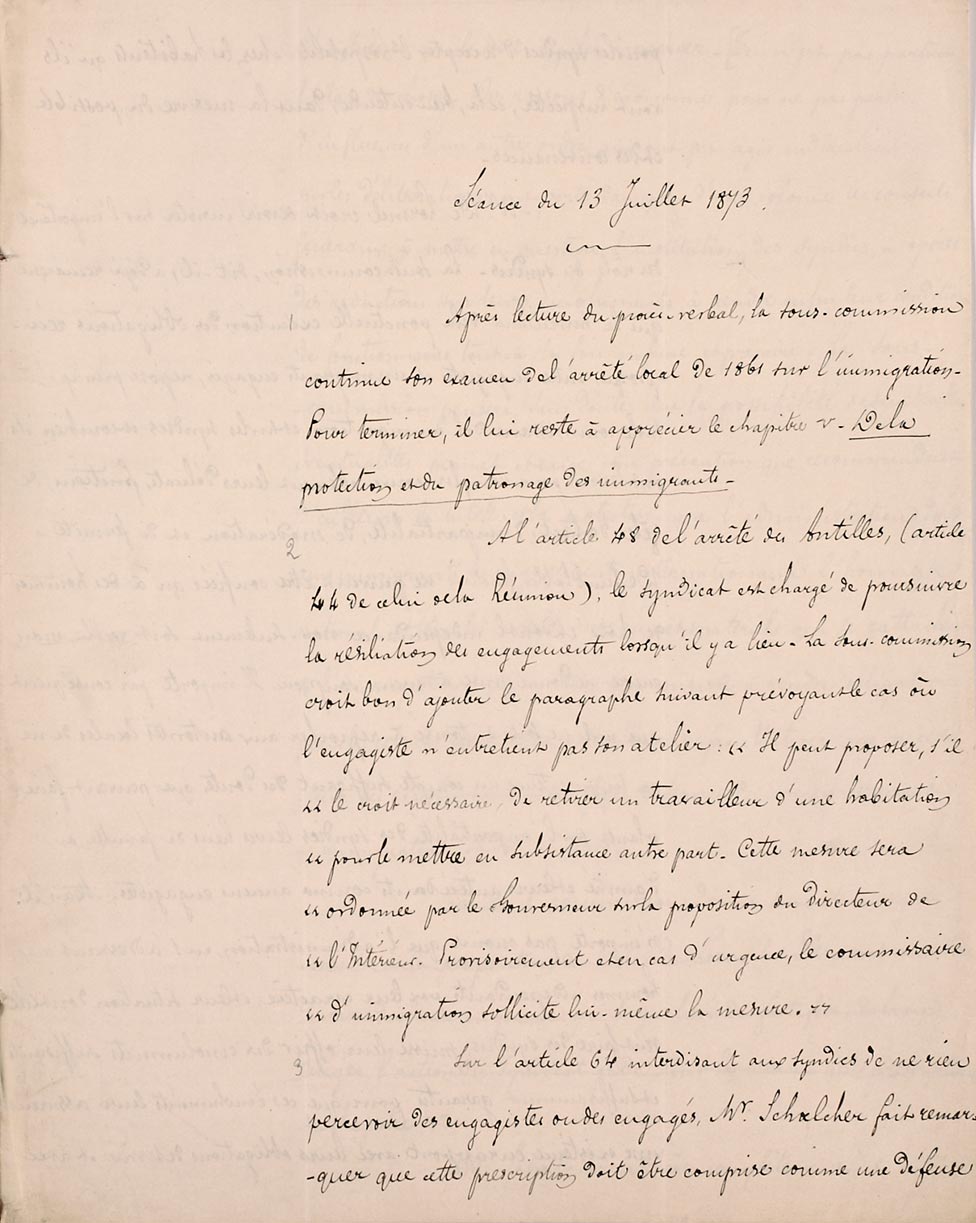 Séance du 13 Juillet 1873.
1 Après lecture du procès-verbal, la sous-commission
continue son examen de l'arrêté local de 1861 sur l'immigration-
Pour terminer, il lui reste à apprécier le chapitre v- De la
protection et du patronage des immigrants-
2 A l'article 48 de l'arrêté des Antilles, (article
44 de celui de la Réunion), le syndicat est chargé de poursuivre
la résiliation des engagements lorsqu'il y a lieu- La sous-commission
croit bon d'ajouter le paragraphe suivant prévoyant le cas où
l'engagiste n'entretient pas son atelier : « Il peut proposer, s'il
« le croit nécessaire, de retirer un travailleur d'une habitation
« pour le mettre en subsistance autre part- Cette mesure sera
« ordonnée par le Gouverneur sur la proposition du Directeur de
« l'Intérieur. Provisoirement et en cas d'urgence, le commissaire
« d'immigration sollicite lui-même la mesure. »
3 Sur l'article 64 interdisant aux syndics de ne rien
percevoir des engagistes ou des engagés, Mr. Schœlcher fait remar-
-quer que cette prescription doit être comprise comme une défense